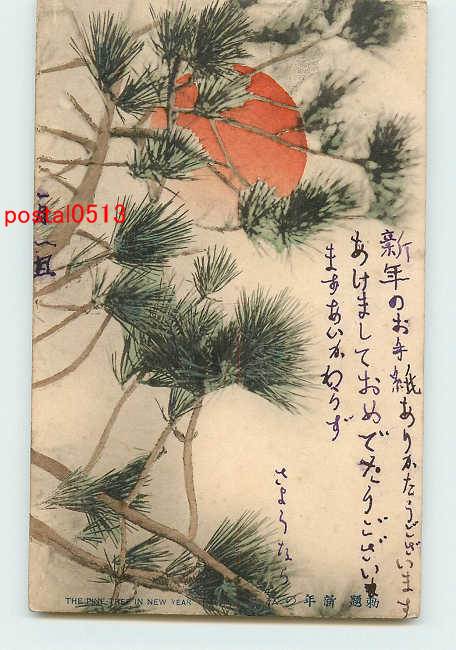 新年のお手紙ありがたうございます
あけましておめでたうございま
ますあいかわらず
さようなら
一月一日
postal0513
THE PINE-TREE IN NEW YEAR
勅題 新年の松